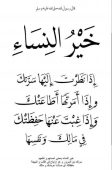 قال رسول الله صلى الله عليه وسلم
خَيْرُ النِّسَاءِ
إِذَا نَظَرْتَ إِلَيْهَا سَرَّتْكَ
وَإِذَا أَمَرْتَهَا أَطَاعَتْكَ
وَإِذَا غِبْتَ عَنْهَا حَفِظَتْكَ
فِي مَالِكَ وَنَفْسِهَا